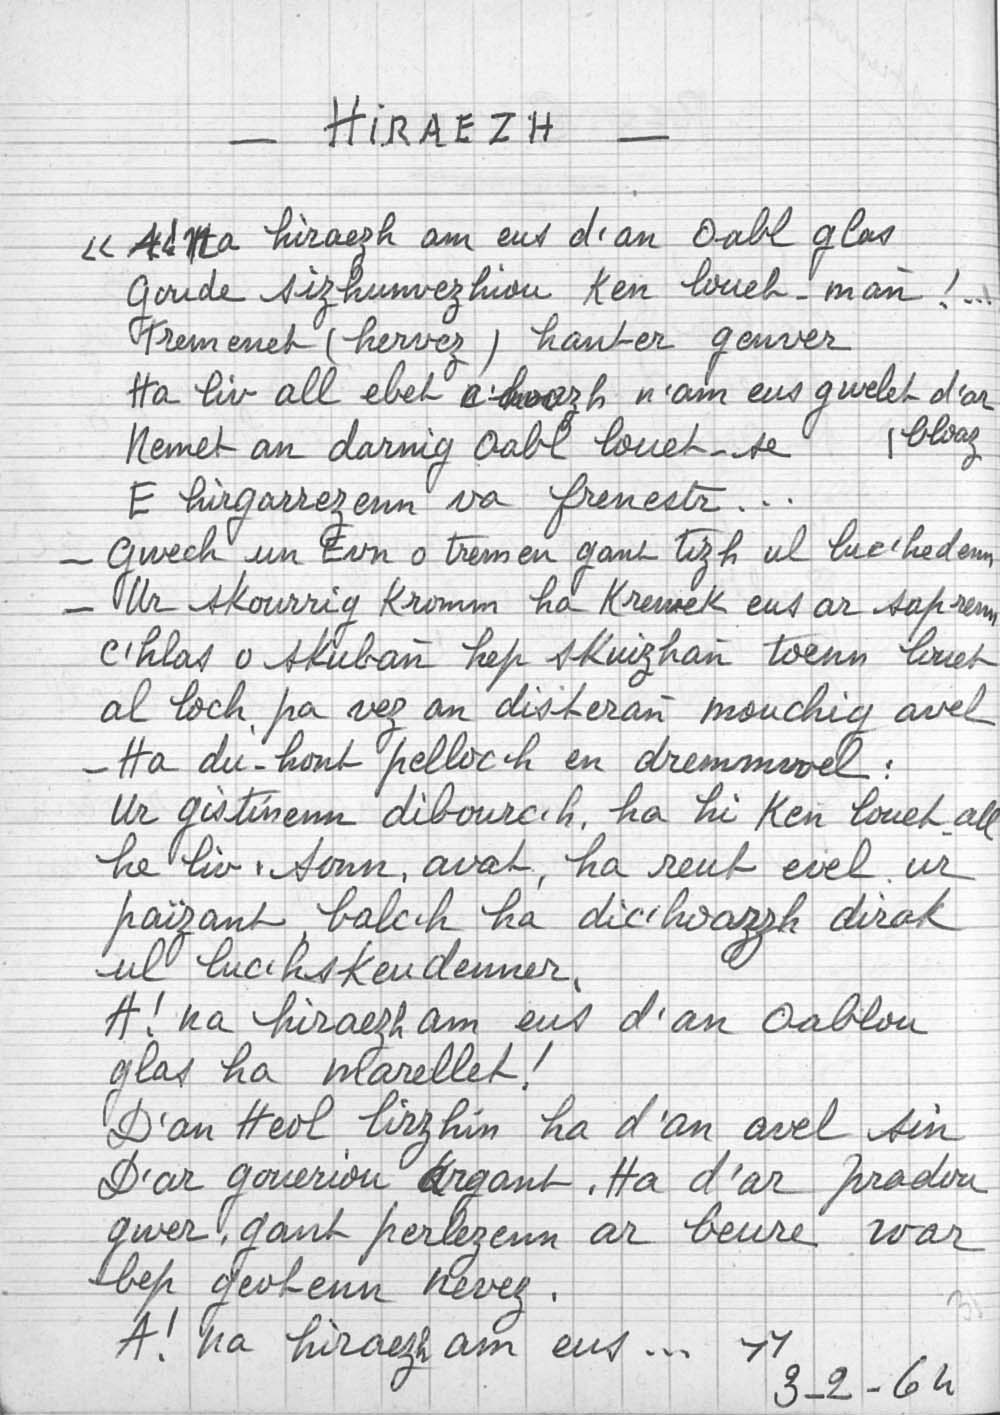 — HIRAEZH —
« A! Na hiraezh am eus d'an Oabl glas
Goude sizhunvezhiou Ken louet-mañ !...
Tremenet (hervez) hanter genver
Ha liv all ebet c'hoazh n'am eus gwelet d'ar
Nemet an darnig Oabl louet-se (bloaz
E hirgarrezenn va frenestr...
— Gwech un Evn o tremen gant tizh ul luc'hedenn
— Ur skourrig Kromm ha Krewek eus ar saprenn
c'hlas o skubañ hep skuizhañ toenn louet
al loch, pa vez an disterañ mouchig avel
— Ha du-hont pelloc'h en dremmwel :
Ur gistinenn dibourc'h, ha hi Ken louet-all
he liv. Sonn, avat, ha reut evel ur
païzant, balc'h ha dic'hoazzh dirak
ul luc'hskeudenner.
A! na hiraezh am eus d'an Oablou
glas ha marellet!
D'an Heol lirzhin ha d'an avel sin
D'ar goueriou Argant. Ha d'ar pradou
gwer, gant perlezenn ar beure war
bep geotenn nevez.
A! na hiraezh am eus... »
3-2-64